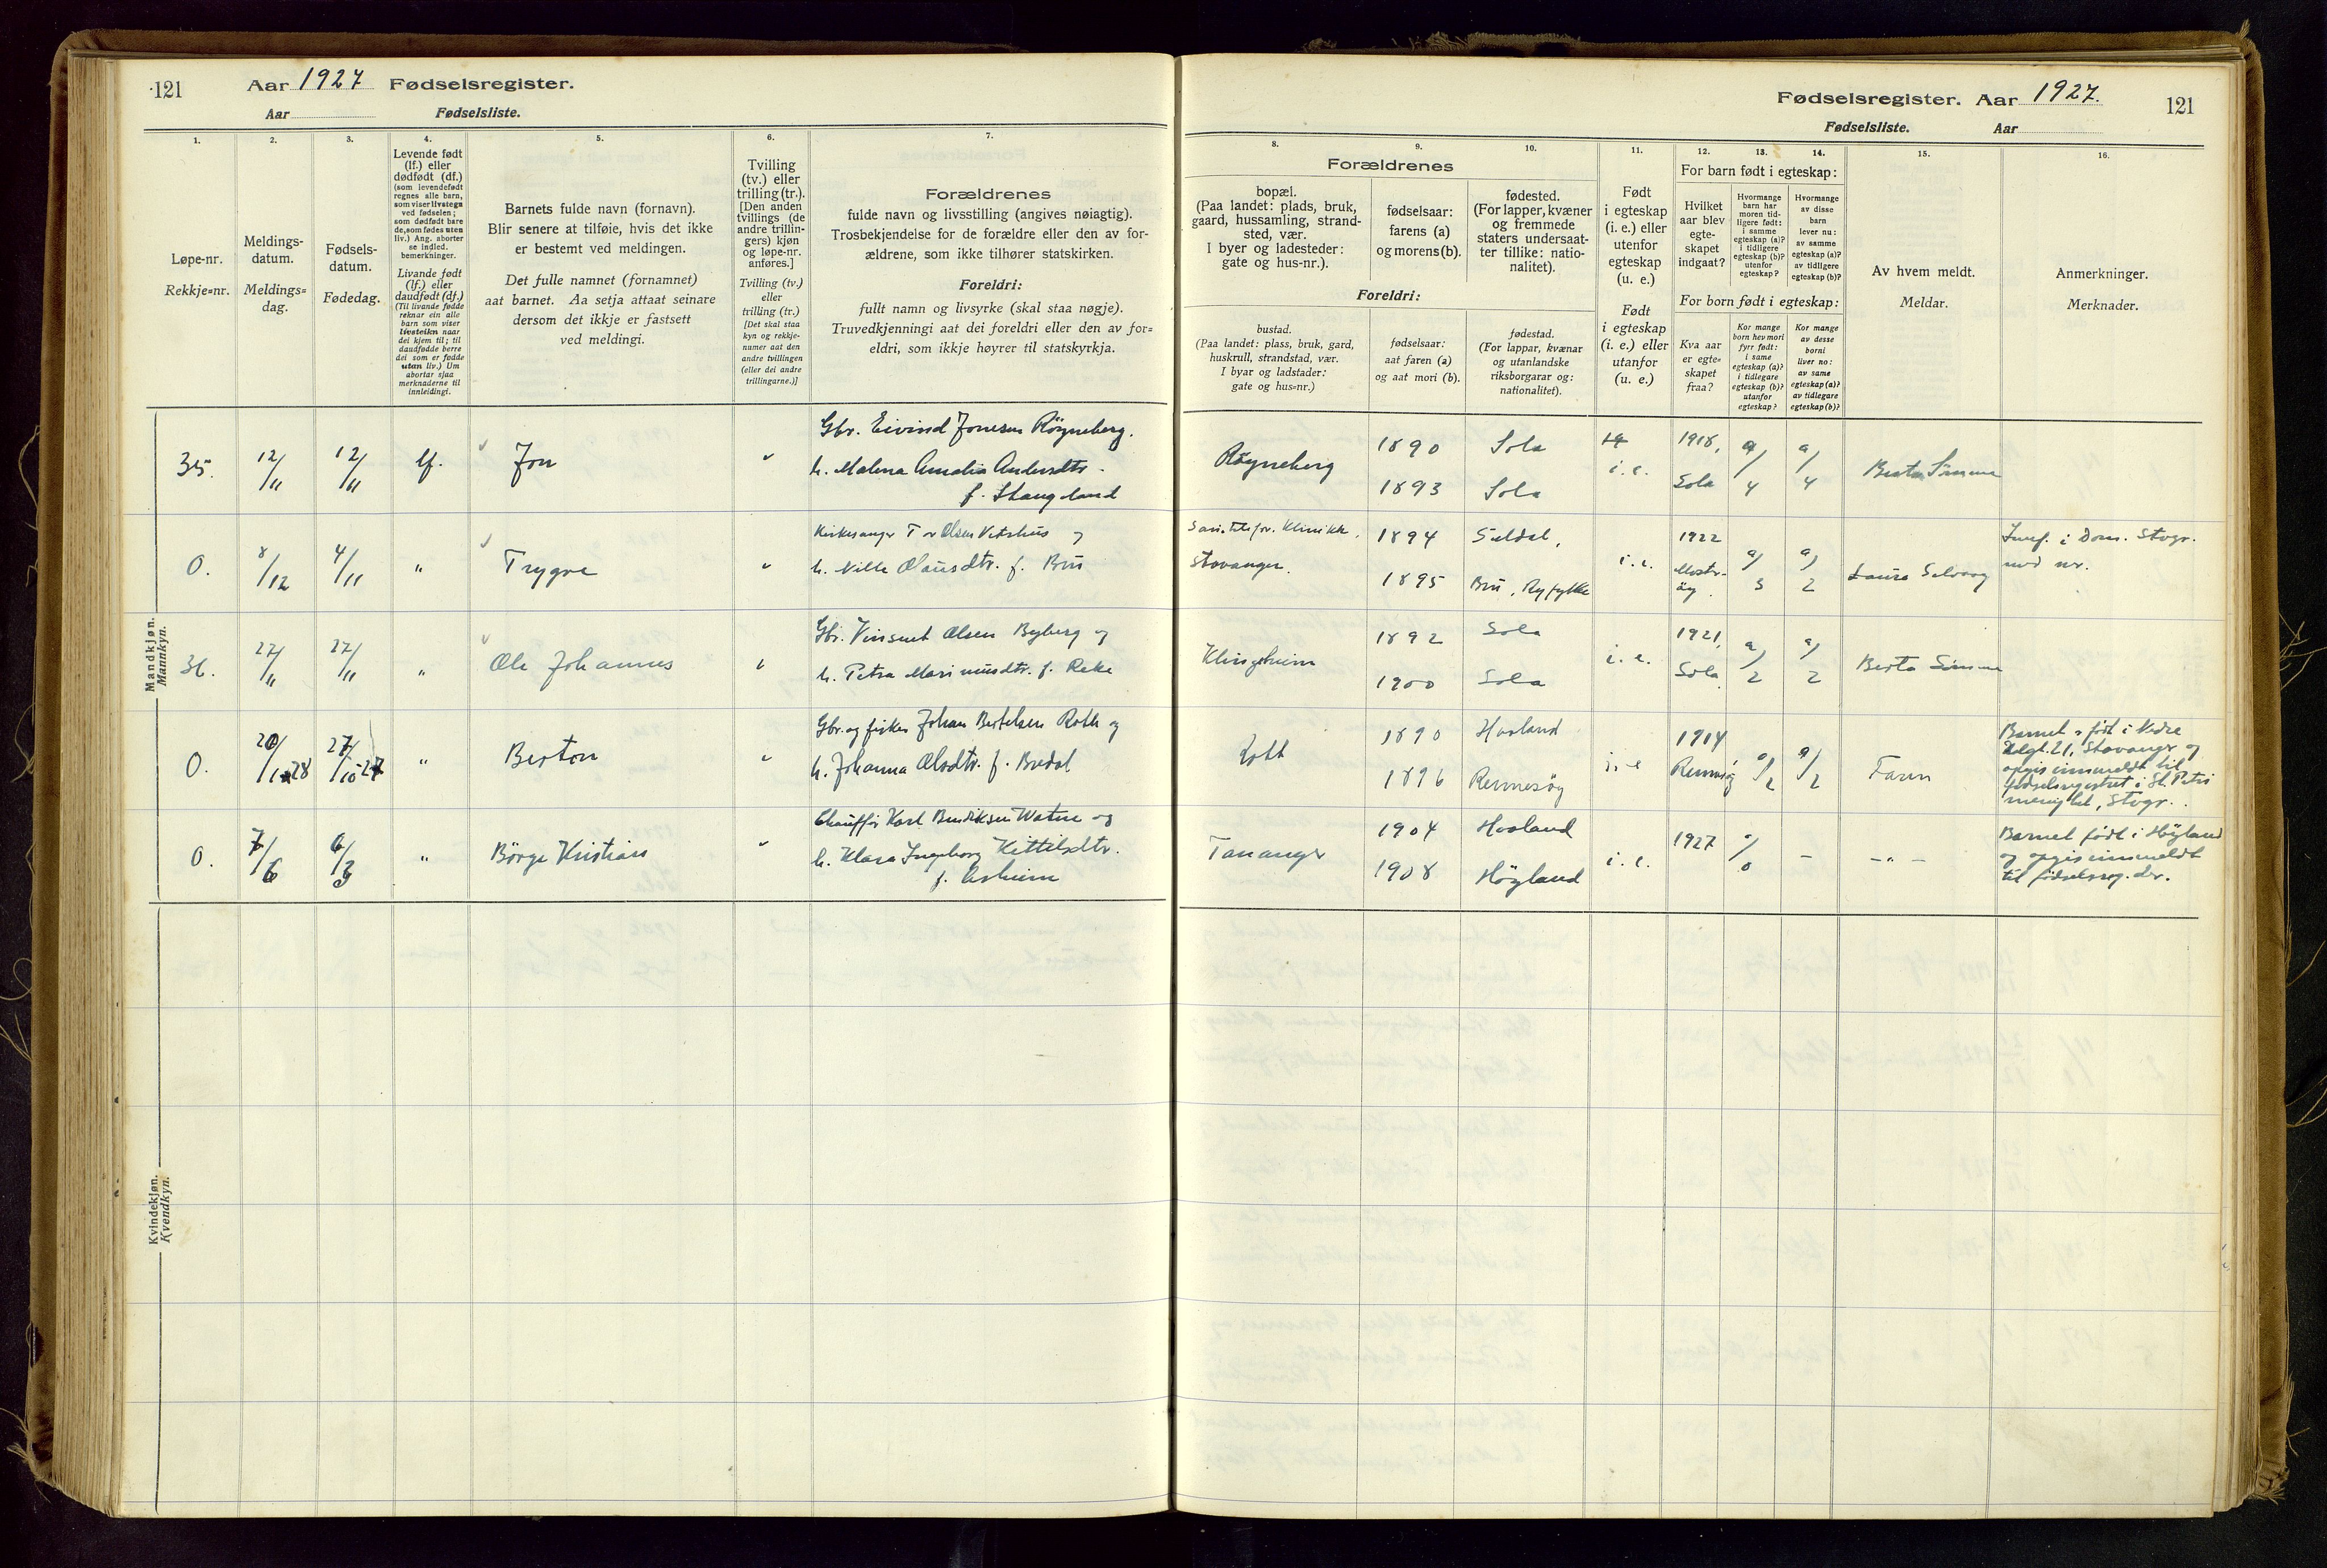 121
Aar 1927 Fødselsregister.
Aar Fødselsliste.
1.
2.
3.
4.
5.
6.
7.
Løpe-nr.
Rekkje=nr.
Meldings-
datum.
Meldings=
dag.
Fødsels-
datum.
Fødedag.
Levende født
(lf.) eller
dødfødt (df.)
(som levendefødt
regnes alle barn,
som viser livstegn
ved fødselen;
som dødfødt bare
de, som fødes uten
liv.) Ang. aborter
se indled.
bemerkninger.
Livande født
(lf.) eller
daudfødt (df.)
(Til livande fødde
reknar ein alle
barn som viser
livsteikn naar
dei kjem til; til
daudfødde berre
dei som er fødde
utan liv.) Um
abortar sjaa
merknaderne til
innleidingi.
Barnets fulde navn (fornavn).
Blir senere at tilføie, hvis det ikke
er bestemt ved meldingen.
Det fulle namnet (fornamnet)
aat barnet. Aa setja attaat seinare
dersom det ikkje er fastsett
ved meldingi.
Tvilling
(tv.) eller
trilling (tr.).
[Den anden
tvillings (de
andre trillin-
gers) kjøn
og løpe-nr.
anføres.]
Tvilling (tv.)
eller
trilling (tr.)
[Det skal staa
kyn og rekkje-
numer aat den
andre tvillingen
(eller dei andre
trillingarne.)]
Forældrenes
fulde navn og livsstilling (angives nøiagtig).
Trosbekjendelse for de forældre eller den av for-
ældrene, som ikke tilhører statskirken.
Foreldri:
fullt namn og livsyrke (skal staa nøgje).
Truvedkjenningi aat dei foreldri eller den av for=
eldri, som ikkje høyrer til statskyrkja.
Mandkjøn.
Mannkyn.
35. 12/11 12/11 lf. Jon
Gbr. Eivind Jonesen Röyneberg.
h. Malena Amalia Andersdtr.
f. Stangeland
0. 8/12 4/11 " Trygve
Kirkesanger Tor Olsen Vetrhus og
h. Nille Olausdtr. f. Bru
36. 27/11 27/11 " Ole Johannes
Gbr. Vinsent Olsen Byberg og
h. Petra Marimusdtr. f. Reke
0. 27/10-27 " Berton
Gbr. og fisker Johan Bertelsen Roth og
h. Johanna Olsdtr. f. Bredal
0. 7/6 6/3 " Börge Kristian
Chaufför Karl Bendiksen Watne og
h. Klara Ingeborg Kittilsdtr.
f. Asheim
Kvindekjøn.
Kvendkyn.
Fødselsregister. Aar 1927.
121
Fødselsliste. Aar
8.
9.
10.
11.
12.
13.
14.
15.
16.
Forældrenes
bopæl.
(Paa landet: plads, bruk,
gaard, hussamling, strand-
sted, vær.
I byer og ladesteder:
gate og hus-nr.).
fødselsaar:
farens (a)
og morens (b).
fødested.
(For lapper, kvæner
og fremmede
staters undersaat-
ter tillike: natio-
nalitet).
Foreldri:
bustad.
(Paa landet: plass, bruk, gard,
huskrull, strandstad, vær.
I byar og ladstader:
gate og hus-nr.)
fødselsaar:
aat faren (a)
og aat mori (b).
fødestad.
(For lappar, kvænar
og utanlandske
riksborgarar og:
nationalitet).
Født
i egteskap
(i. e.) eller
utenfor
egteskap
(u. e.)
Født
i egteskap
(i. e.) eller
utanfor
(u. e.)
For barn født i egteskap:
Hvilket
aar blev
egte-
skapet
indgaat?
Hvormange
barn har
moren tid-
ligere født:
i samme
egteskap (a)?
i tidligere
egteskap (b)?
utenfor
egteskap?
Hvormange
av disse
barn
lever nu:
av samme
egteskap (a)?
av tidligere
egteskap (b)?
For born født i egteskap:
Kva aar
er egte=
skapet
fraa?
Kor mange
born hev mori
fyrr født:
i same
egteskap (a)?
i tidlegare
egteskap (b)?
utanfor
egteskap?
Kor mange
av desse
borni
liver no:
av same
egteskap (a)?
av tidlegare
egteskap (b)?
Av hvem meldt.
Meldar.
Anmerkninger.
Merknader.
Röyneberg
1890 Sola
1893 Sola
i. e.
1918,
Sola
a/4 a/4
Berta Sömme
Sanitetsfor. Klinikk,
Stavanger.
1894 Suldal,
1895 Bru, Ryfylke
i. e.
1922
Mosteröy.
a/3 a/2
Laura Selvaag
Innf. i Dom. Stvgr.
med nr.
Klingsheim
1892 Sola
1900 Sola
i. e.
1921,
Sola
a/2 a/2
Berta Sömme
Rott
1890 Haaland
1896 Rennesöy
i. e
1914
Rennesöy
a/2 a/2
Faren
Barnet er födt i Nedre
21, Stavanger og
opgis innmeldt til
födselsregistret i St. Petri
menighet, Stvgr.
Tananger
1904 Haaland
1908 Höyland
i. e.
1927
a/0 –
–"–
Barnet födt i Höyland
og opgis innmeldt
til födselsreg. der.